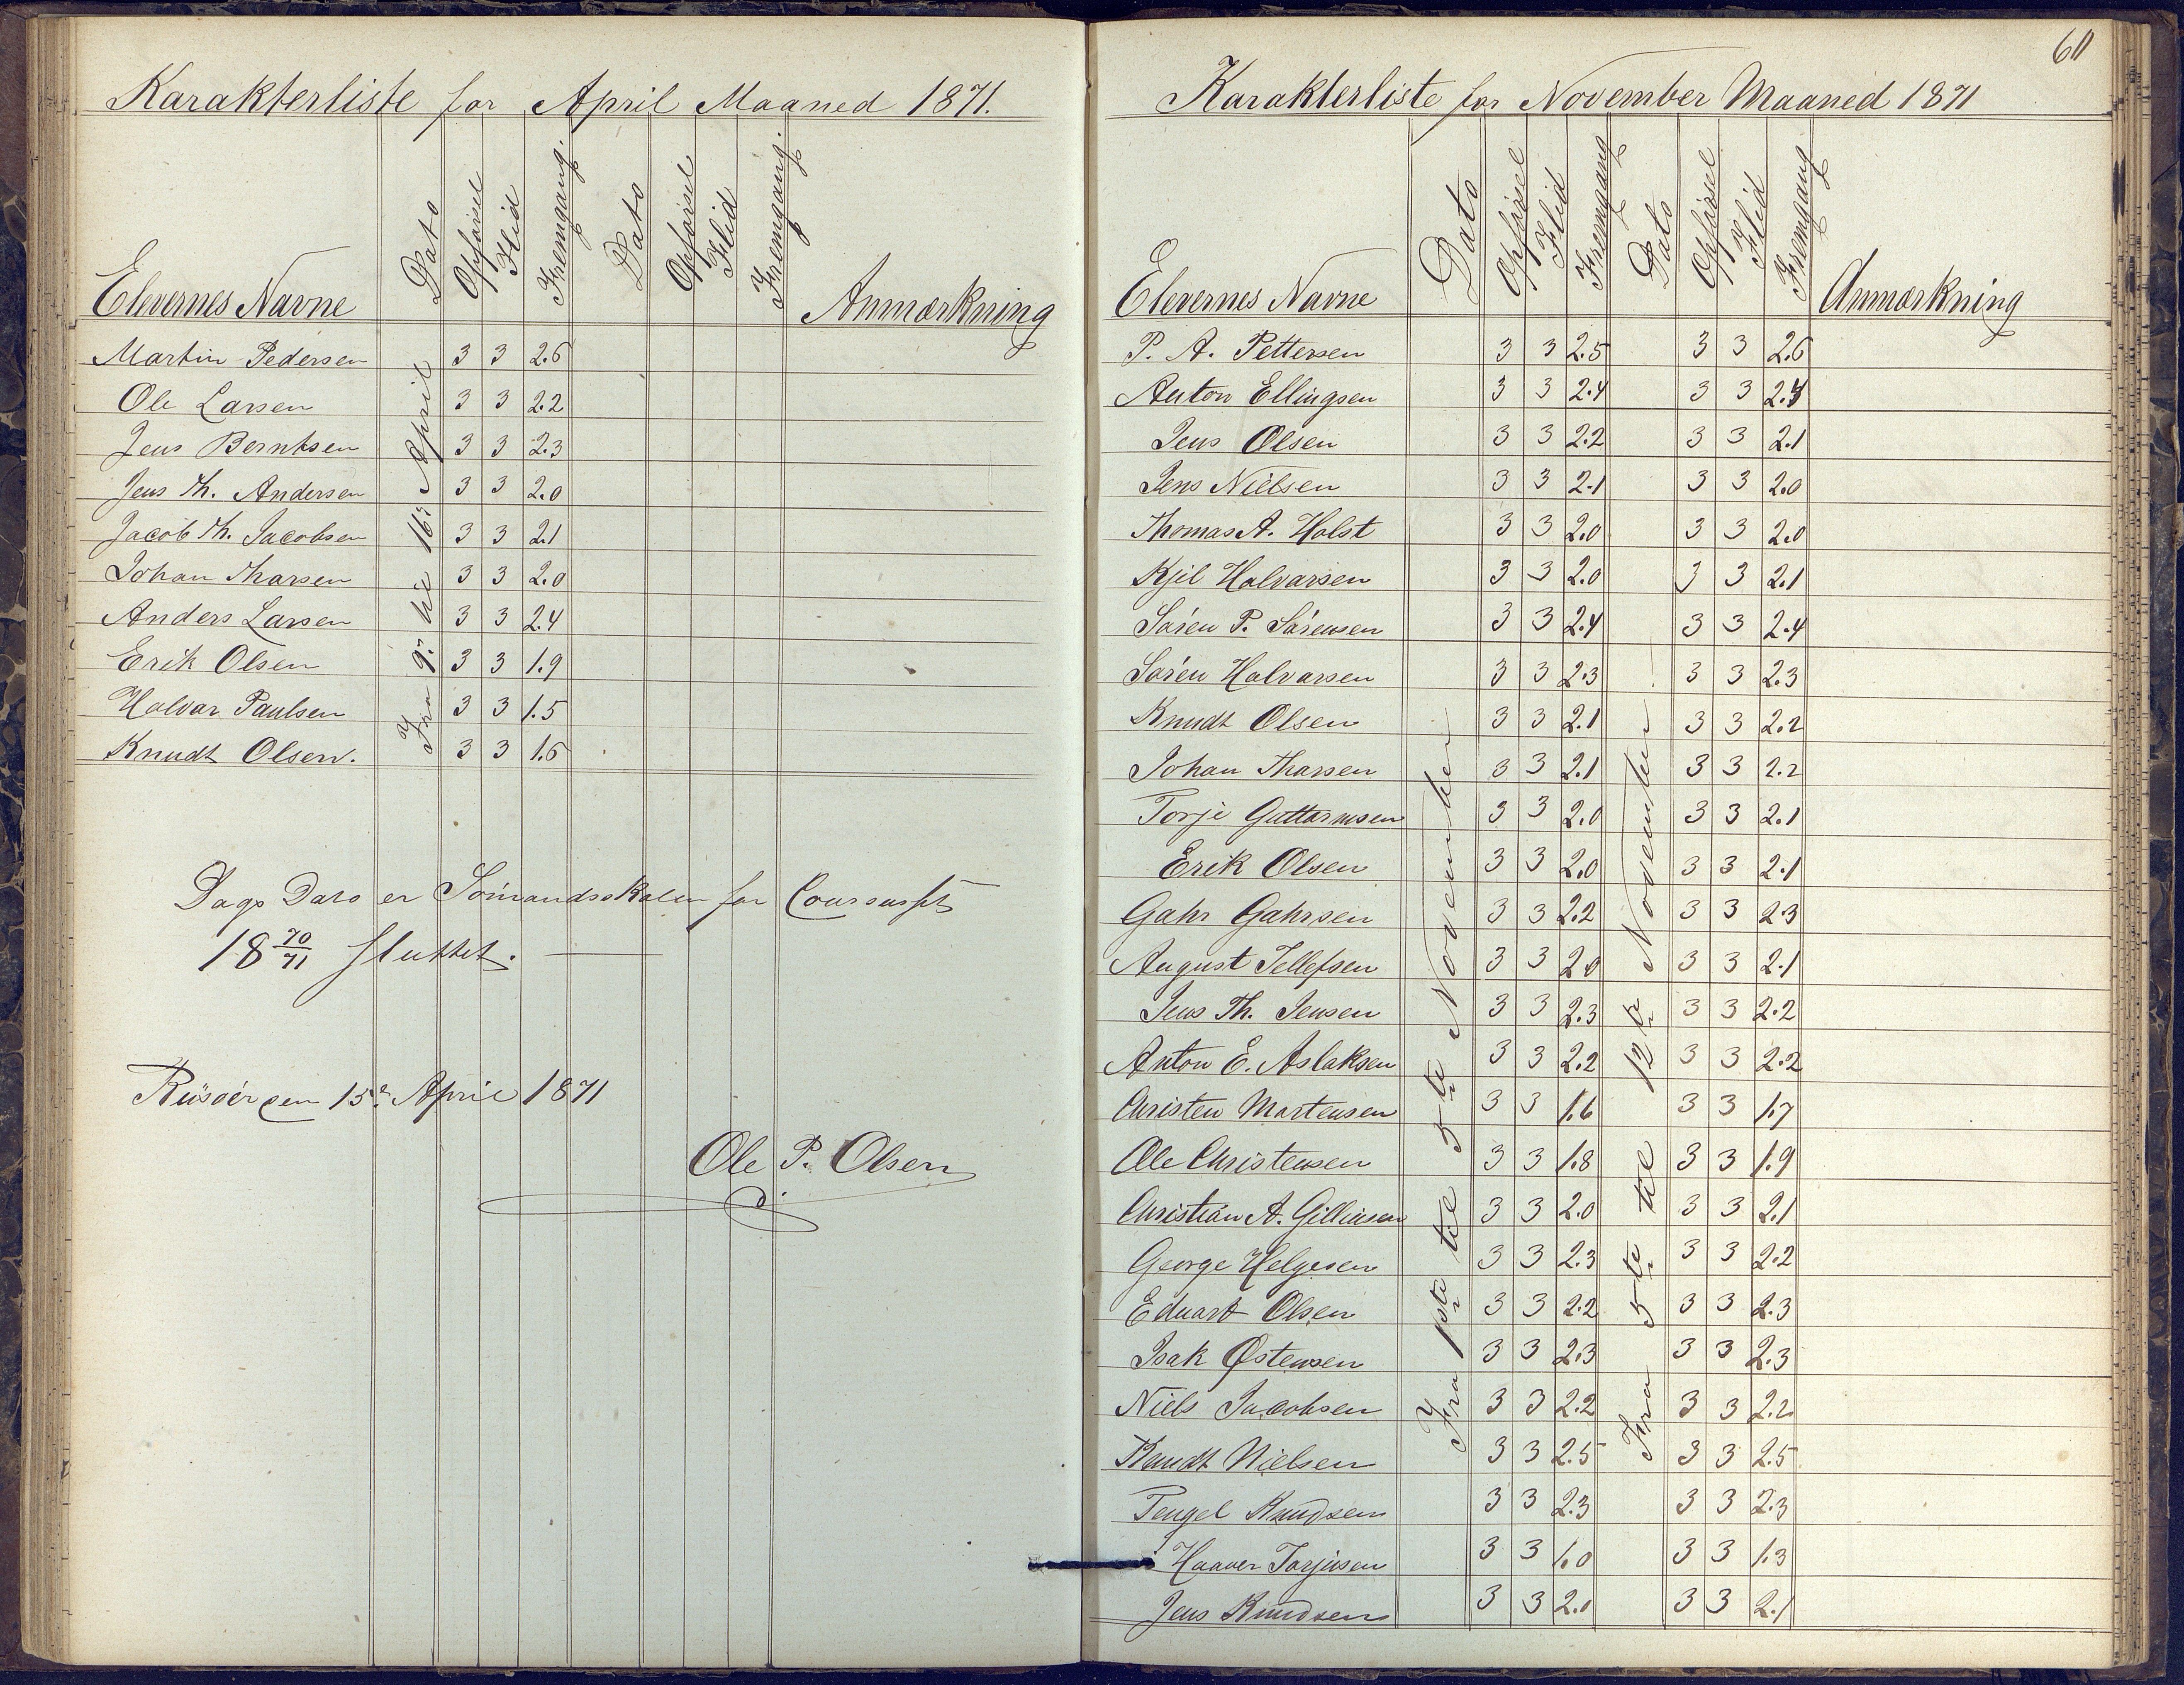 Karakterliste for April Maaned 1871.
Elevernes Navne Dato Opførsel Flid Fremgang. Dato Opførsel Flid Fremgang. Anmærkning
Fra 9de til 16de April
Martin Pedersen 3 3 2.6
Ole Larsen 3 3 2.2
Jens Berntsen 3 3 2.3
Jens Th. Andersen 3 3 2.0
Jacob Th. Jacobsen 3 3 2.1
Johan Tharsen 3 3 2.0
Anders Larsen 3 3 2.4
Erik Olsen 3 3 1.9
Halvar Paulsen 3 3 1.5
Knudt Olsen. 3 3 1.6
Dags Dato er Sømandsskolen for Coursuset
18 70/71 sluttet.
Riisøer den 15de April 1871
Ole P. Olsen
60
Karakterliste for November Maaned 1871
Elevernes Navne Dato Opførsel Flid Fremgang Dato Opførsel Flid Fremgang Anmærkning
Fra 1ste til 5te November
Fra 5te til 12te November
P. A. Pettersen 3 3 2.5 3 3 2.6
Anton Ellingsen 3 3 2.4 3 3
Jens Olsen 3 3 2.2 3 3 2.1
Jens Nielsen 3 3 2.1 3 3 2.0
Thomas A. Holst 3 3 2.0 3 3 2.0
Kjil Halvarsen 3 3 2.0 3 3 2.1
Søren P. Sørensen 3 3 2.4 3 3 2.4
Søren Halvarsen 3 3 2.3 3 3 2.3
Knudt Olsen 3 3 2.1 3 3 2.2
Johan Tharsen 3 3 2.1 3 3 2.2
Torje Guttormsen 3 3 2.0 3 3 2.1
Erik Olsen 3 3 2.0 3 3 2.1
Gahr Gahrsen 3 3 2.2 3 3 2.3
August Tellefsen 3 3 2.0 3 3 2.1
Jens Th. Jensen 3 3 2.3 3 3 2.2
Anton E. Aslaksen 3 3 2.2 3 3 2.2
Christen Martensen 3 3 1.6 3 3 1.7
Ole Christensen 3 3 1.8 3 3 1.9
Christian A. 3 3 2.0 3 3 2.1
George Helgesen 3 3 2.3 3 3 2.2
Eduart Olsen 3 3 2.2 3 3 2.3
Isak Østensen 3 3 2.3 3 3 2.3
Niels Jacobsen 3 3 2.2 3 3 2.2
Knudt Nielsen 3 3 2.5 3 3 2.5
Tengel Knudsen 3 3 2.3 3 3 2.3
Haaver Torjusen 3 3 1.0 3 3 1.3
Jens Knudsen 3 3 2.1 3 3 2.1